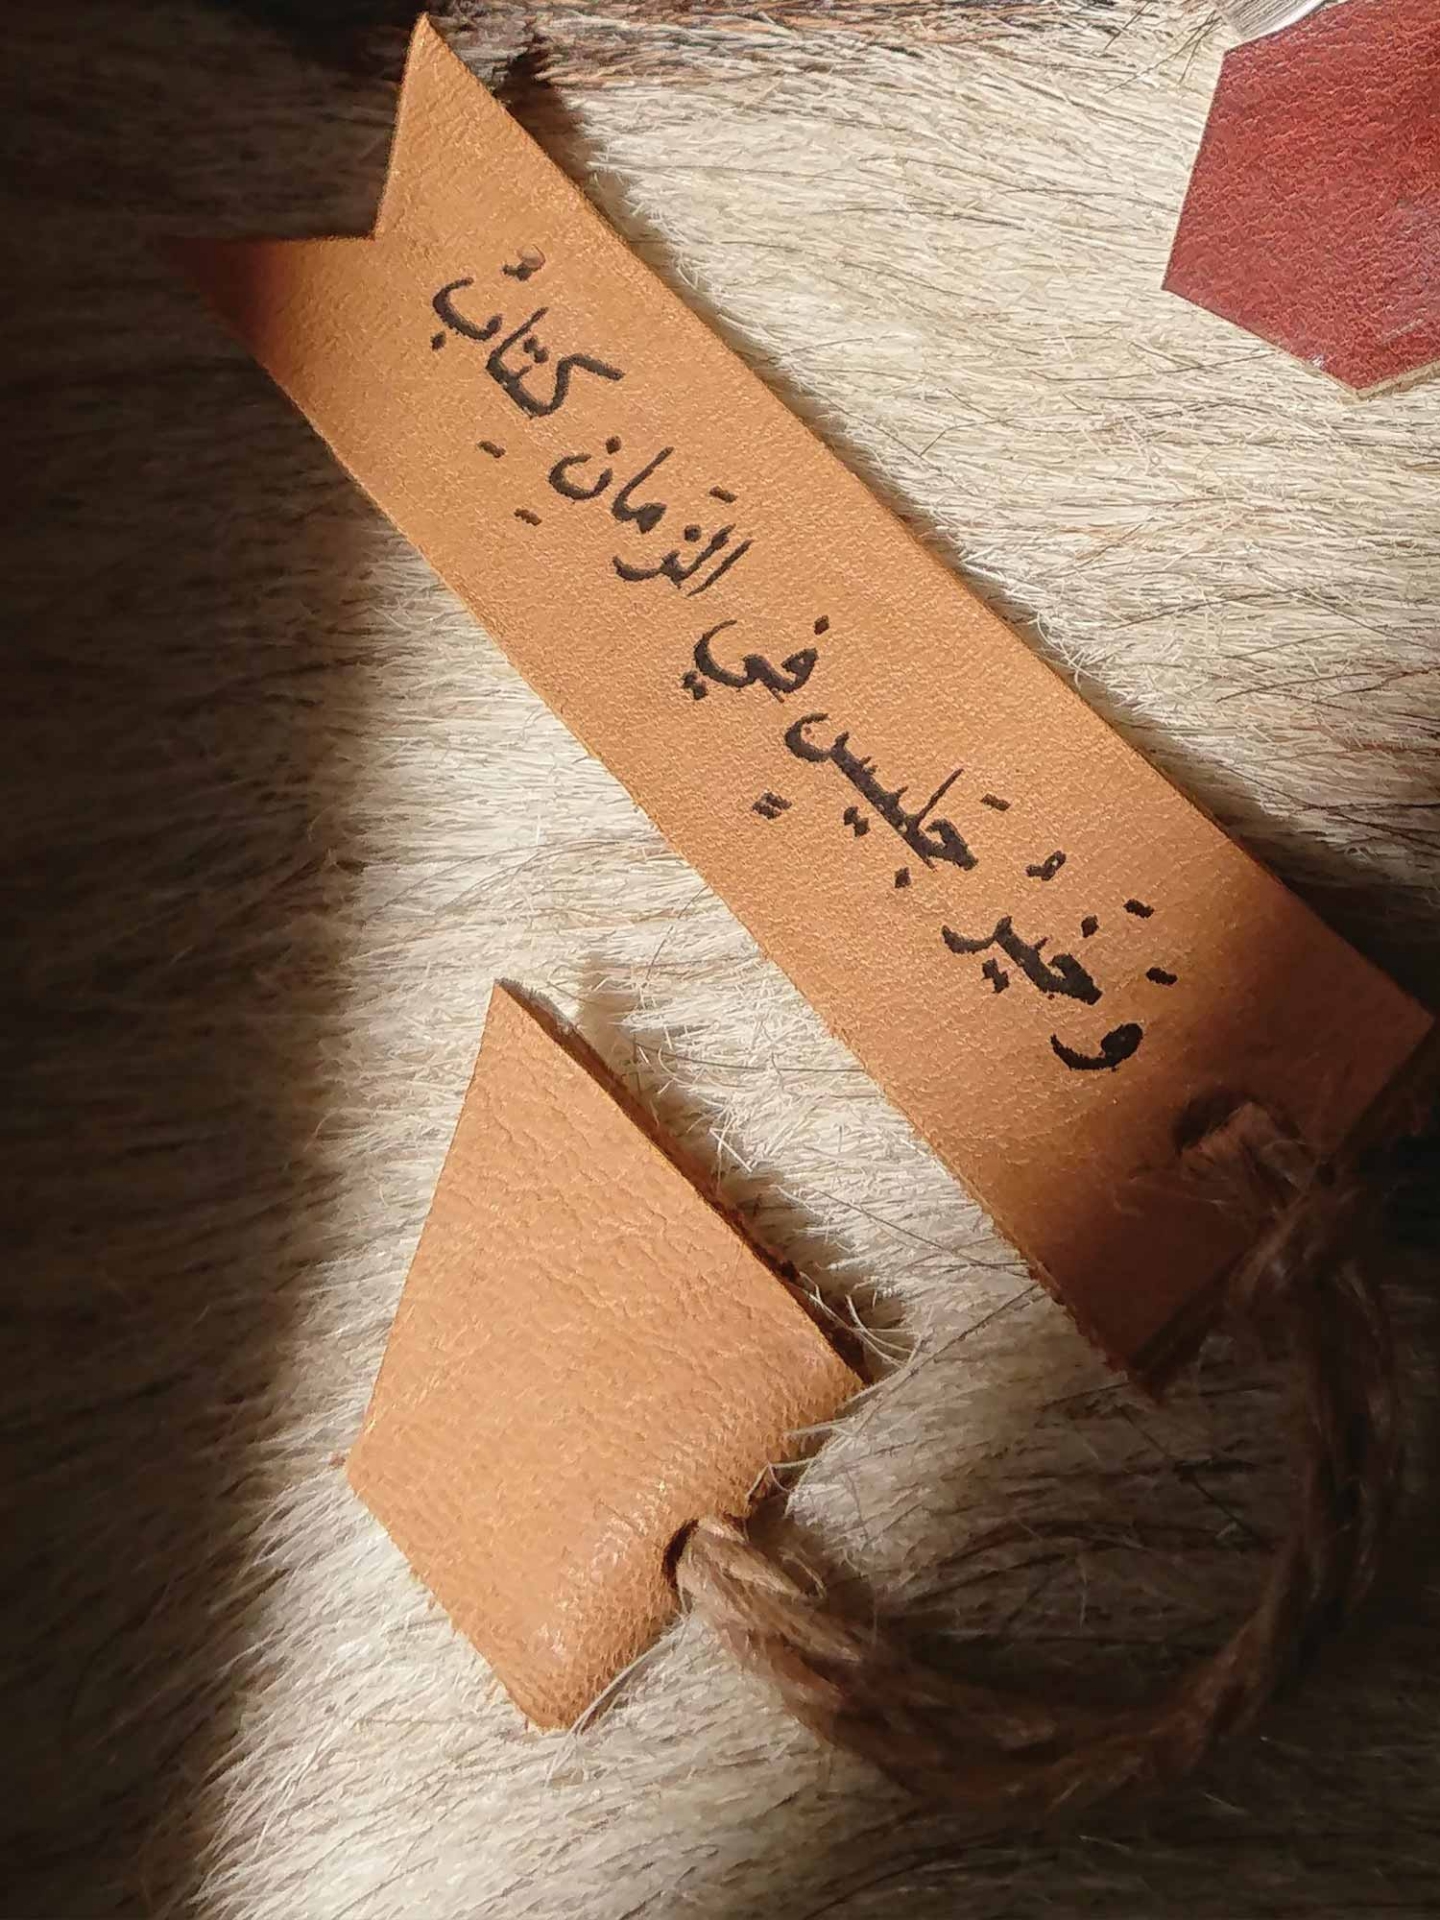 وَخَيْرُ جَلِيسٍ في الزَمانِ كِتابُ